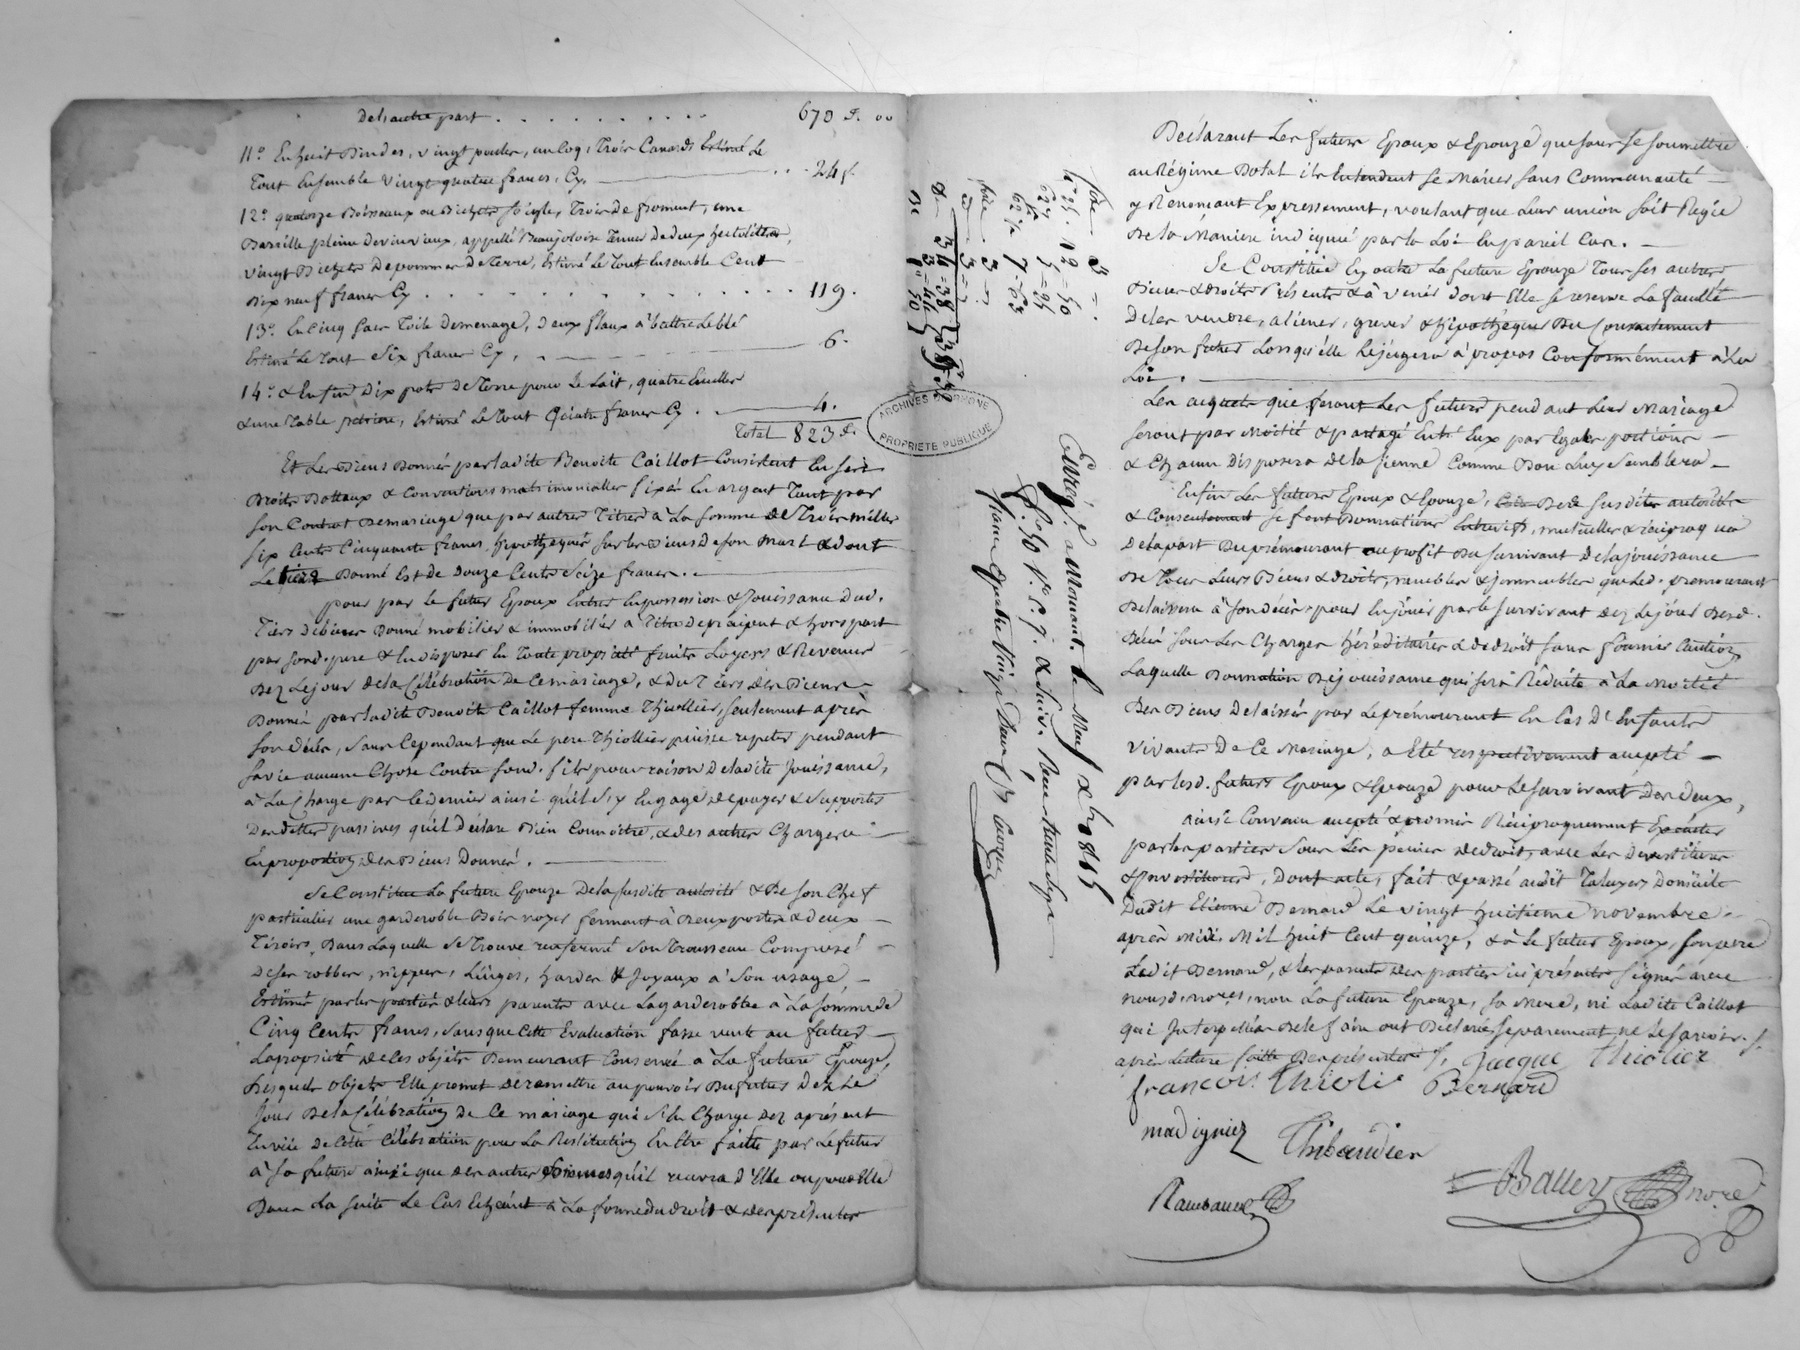 De l'autre part . . . . . . . . . . 673 f. 00
11.° En huit Dindes, vingt poules, un coq, trois Canards Estimé Le
tout Ensemble vingt quatre francs, Cy, . . . 24 f.
12.° quatorze Boisseaux ou Bichets seigle, Trois De froment, une
Barrille pleine De vin vieux, appellé Beaujoloise Tenue De deux hectolitres,
vingt Bichets De pommes De Terre, Estimé Le Tout Ensemble Cent
Dix neuf francs Cy . . . . . . . . . . 119.
13.° En Cinq sacs Toile De menage, deux flaux à battre Le blé
Estimé Le Tout Six francs Cy, . 6.
14.° & Enfin Dix pots De Terre pour Le Lait, quatre Ecuelles
& une Table petrière, Estimé Le Tout Quatre francs Cy . 4.
Total 823 f.
Et Les Biens Donnés par ladite Benoite Caillot Consistent En ses
Droits Dottaux & Conventions matrimonialles fixés En argent Tant par
son Contrat De mariage que par autres Titres à La somme de Trois milles
six Cents Cinquante francs, hipothéqués sur les Biens De son Mari & dont
Le tiers Donné Est de Douze Cents Seize francs.
pour par le futur Epoux Entrer En possession & Jouissance Dud.
Tiers De biens Donné mobilier & immobilier à Titre De préciput & hors part
par sond. pere & En disposer En Toute propriété fruits Loyers & Revenus
Dez Le jour de la Célébration De Ce mariage, & du Tiers des Biens
Donnés par ladite Benoite Caillot femme Thiollier, seulement après
son décès, sans Cependant que Le pere Thiollier puisse repeter pendant
sa vie aucune Chose Contre sond. fils pour raison De ladite Jouissance,
à La Charge par le dernier ainsi qu'il s'y Engage de payer & Supporter
Des dettes passives qu'il Déclare Bien Connoitre, & des autres Charges
En proportion des Biens Donnés.
Se Constitue La future Epouze De la susdite autorité & De son Chef
particulier une garderobbe Bois noyer fermant à Deux portes & deux
Tiroirs, Dans Laquelle se Trouve renfermé son Trousseau Composé
De ses robbes, nippes, Linges, hardes & Joyaux à Son usage,
Estimé par les parties & leurs parents avec La garderobbe à La somme de
Cinq Cents francs, sans que Cette Evaluation fasse vente au futur
La propriété de Ces objets Demeurant Conservée à La future Epouze,
Lesquels objets Elle promet de remettre au pouvoir Du futur Dez Le
Jour De la Célébration De Ce mariage qui s'En Charge Dez aprésent
En vüe De Cette Célébration pour La Restitution En Etre faitte par Le futur
à Sa future ainsi que des autres Sommes qu'il recevra d'Elle ou pour Elle
Dans La suite Le Cas Echéant à La forme du droit & des présentes
ARCHIVES DU RHONE
PROPRIETE PUBLIQUE
Enreg.é à Mornant. Le Neuf Xbre 1815
Déclarant Les futurs Epoux & Epouze que sans se soumettre
au Régime Dotal ils Entendent se Marier sans Communauté
y Renonçant Expressement, voulant que Leur union soit Régie
De la Maniere indiquée par la Loi En pareil Cas.
Se Constitue En outre La future Epouze Tous ses autres
Biens & droits Présents & à venir dont Elle se reserve La faculté
De les vendre, aliener, grever & hipothéquer Du Consentement
De son futur Lorsqu'elle Le jugera à propos Conformément à La
Loi.
Les acquets que feront Les futurs pendant Leur Mariage
seront par Moitié & partagé Entr'Eux par Egales portions
& Chacun Disposera De la sienne Comme Bon Luy Semblera
Enfin Les futurs Epoux & Epouze, De de susdite autorité
& Consentement se font Donnations Entrevifs, mutuelles & réciproques
De la part Du prémourant au profit Du survivant De la jouissance
De Tous Leurs Biens & droits, meubles & immeubles que Led. premourant
Delaissera à son décès, pour En jouir par le survivant dez Le jour Desd.
Décès sous Les Charges héréditaires & de droit sans fournir Caution,
Laquelle Donnation De jouissance qui sera Réduite à La Moitié
Des Biens Delaissés par Le prémourant En Cas D'Enfants
vivants De Ce Mariage, a Eté respectivement accepté
par lesd. futurs Epoux & Epouze pour Le survivant Des deux,
ainsi Convenu accepté & promis Réciproquement Exécuter
par les parties sous Les peines de droit, avec Les Devestitures
& Investitures, Dont acte, fait & passé audit Taluyers Domicile
Dudit Etienne Bernard Le vingt huitieme novembre
après Midi Mil huit Cent quinze, & a Le futur Epoux, son pere
Ledit Bernard, & les parents des parties ici présents signé avec
nousd. notres, non La future Epouze, sa Mere, ni Ladite Caillot
qui Interpellées De le faire ont Déclaré séparement ne Le savoir
après Lecture faitte Des présentes
Jacque Thiolier
francois Thiolie Bernard
madigniez Thibaudier
Rambaud Balley nore